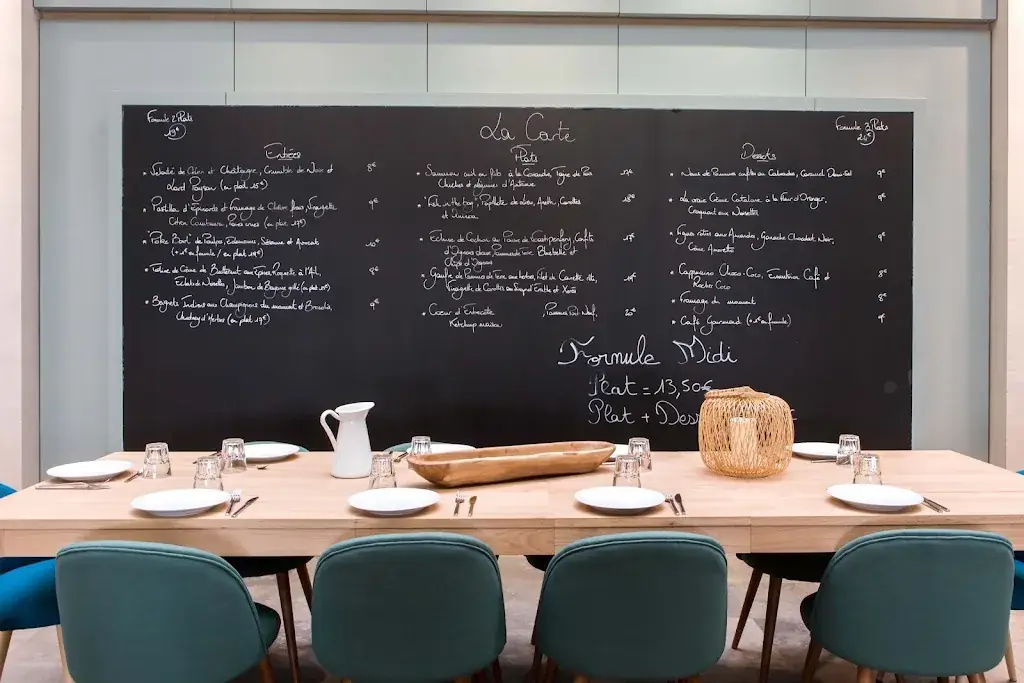 Formule 2 Plats
19€
La Carte
Formule 3 Plats
24€
Entrées
Velouté de Céleri et Châtaigne, Crumble de Noix et 8€
Lard Paysan (en plat 15€)
Pastilla d'Épinards et Fromage de Chèvre frais, Vinaigrette 9€
(en plat 17€)
"Poke Bowl" de Poulpe, Edamames, Sésame et Avocat 10€
(+2€ en formule / en plat 19€)
Crème de Butternut aux épices, Roquette à l'Ail, 8€
Éclats de Noisettes, Jambon de Bayonne grillé (en plat 15€)
Beignets Indiens aux Champignons du moment et Brocolis, 9€
Chutney d'Herbes (en plat 17€)
Plats
Saumon cuit au
Chiches et légumes d'Automne
"Fish in the bag", Papillote de Lieu, Carottes 18€
et Quinoa
de Cochon au Poivre de Confits 17€
d'Oignons doux, Pomme de Terre et
d'Oignons
Gaufre de Pommes de Terre aux herbes, Carotte rôtie,
Vinaigrette de Carottes au
Coeur d'Entrecôte , Pommes Pont Neuf, 20€
Ketchup maison
Desserts
de Pommes confites au Calvados, Caramel 9€
La vraie Crème Catalane à la fleur d'Oranger, 9€
Croquant aux Noisettes
Figues rôties aux Amandes, Ganache Chocolat Noir, 9€
Crème Amaretto
Cappuccino Choco-Coco, Café et 8€
Rocher Coco
Fromage du moment 8€
Café Gourmand (+2€ en formule) 9€
Formule Midi
Plat = 13,50€
Plat + Dess